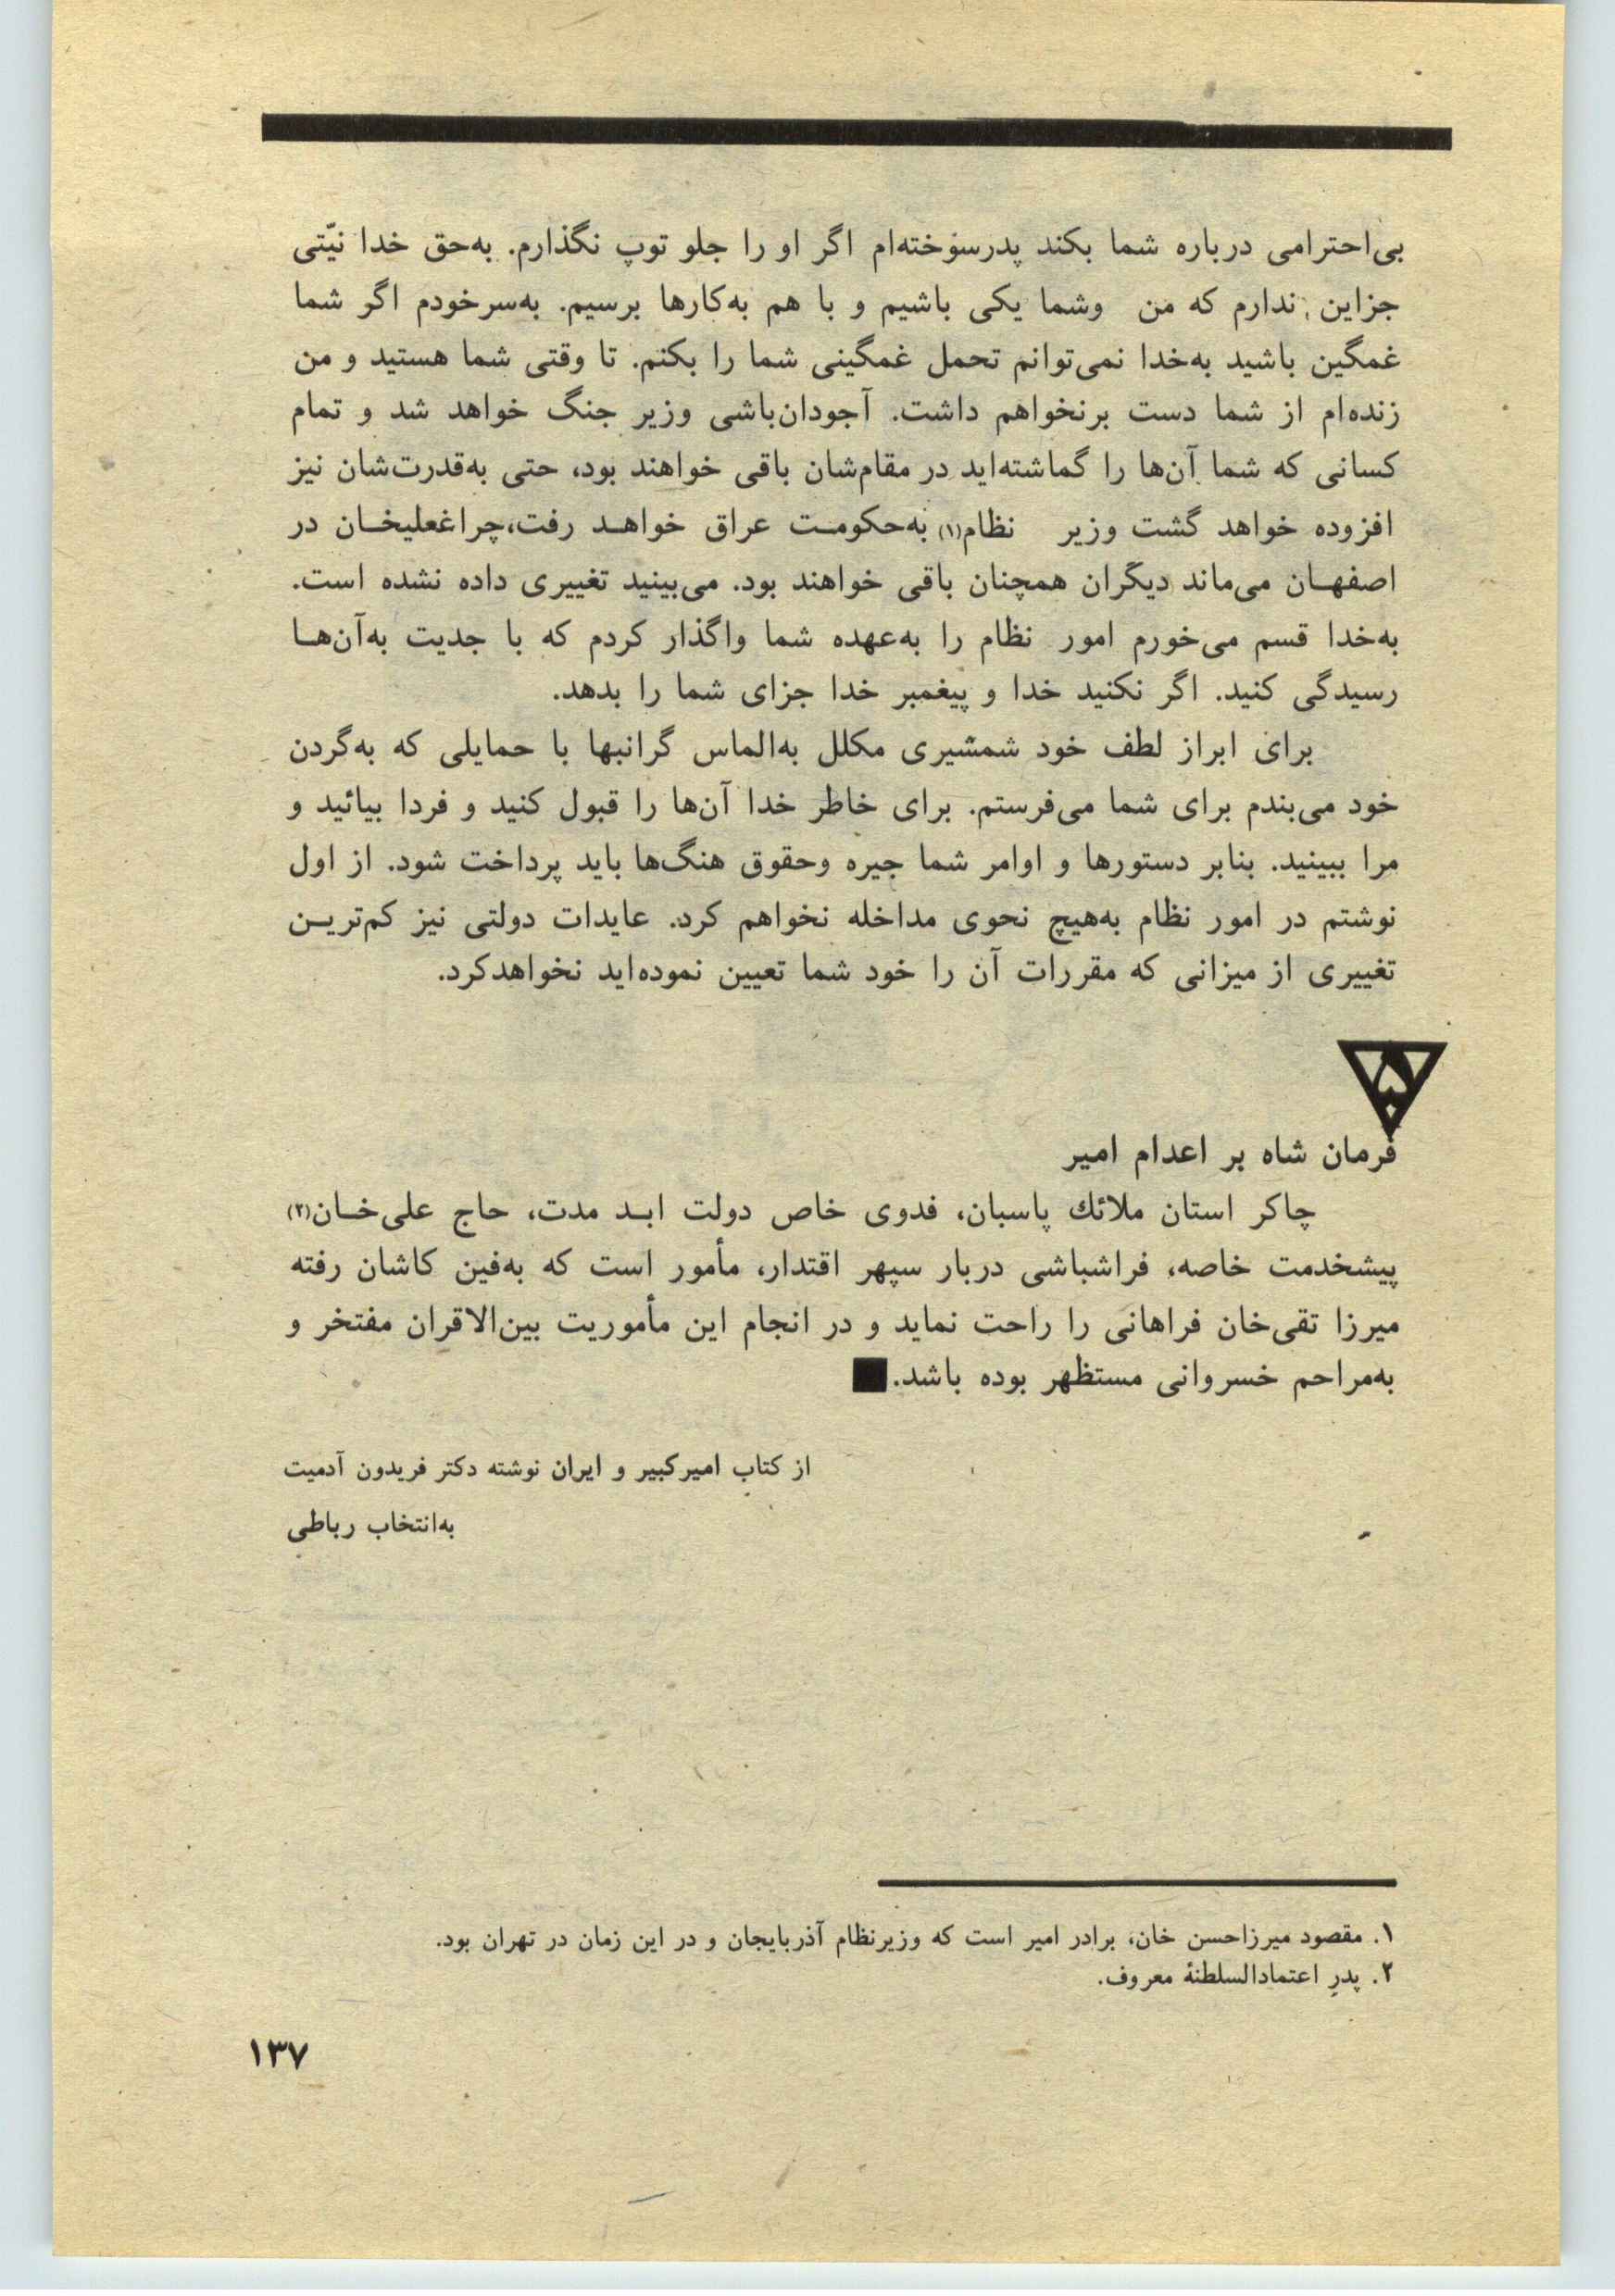 بی‌احترامی درباره شما بکند پدرسوخته‌ام اگر او را جلو توپ نگذارم. به‌حق خدا نیّتی
جزاین ندارم که من وشما یکی باشیم و با هم به‌کارها برسیم. به‌سرخودم اگر شما
غمگین باشید به‌خدا نمی‌توانم تحمل غمگینی شما را بکنم. تا وقتی شما هستید و من
زنده‌ام از شما دست برنخواهم داشت. آجودان‌باشی وزیر جنگ خواهد شد و تمام
کسانی که شما آن‌ها را گماشته‌اید در مقام‌شان باقی خواهند بود، حتی به‌قدرت‌شان نیز
افزوده خواهد گشت وزیر نظام(۱) به‌حکومت عراق خواهد رفت،چراغعلیخان در
اصفهان می‌ماند دیگران همچنان باقی خواهند بود. می‌بینید تغییری داده نشده است.
به‌خدا قسم می‌خورم امور نظام را به‌عهده شما واگذار کردم که با جدیت به‌آن‌ها
رسیدگی کنید. اگر نکنید خدا و پیغمبر خدا جزای شما را بدهد.
برای ابراز لطف خود شمشیری مکلل به‌الماس گرانبها با حمایلی که به‌گردن
خود می‌بندم برای شما می‌فرستم. برای خاطر خدا آن‌ها را قبول کنید و فردا بیائید و
مرا ببینید. بنابر دستورها و اوامر شما جیره وحقوق هنگ‌ها باید پرداخت شود. از اول
نوشتم در امور نظام به‌هیچ نحوی مداخله نخواهم کرد. عایدات دولتی نیز کم‌ترین
تغییری از میزانی که مقررات آن را خود شما تعیین نموده‌اید نخواهدکرد.
۵
فرمان شاه بر اعدام امیر
چاکر استان ملائك پاسبان، فدوی خاص دولت ابد مدت، حاج علی‌خان(۲)
پیشخدمت خاصه، فراشباشی دربار سپهر اقتدار، مأمور است که به‌فین کاشان رفته
میرزا تقی‌خان فراهانی را راحت نماید و در انجام این مأموریت بین‌الاقران مفتخر و
به‌مراحم خسروانی مستظهر بوده باشد.
از کتاب امیرکبیر و ایران نوشته دکتر فریدون آدمیت
به‌انتخاب رباطی
۱. مقصود میرزاحسن خان، برادر امیر است که وزیرنظام آذربایجان و در این زمان در تهران بود.
۲. پدرِ اعتمادالسلطنهٔ معروف.
۱۳۷